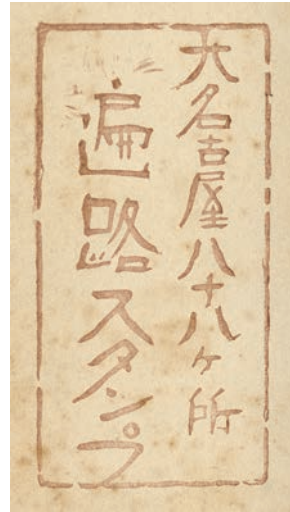 大名古屋八十八ヶ所
遍路スタンプ